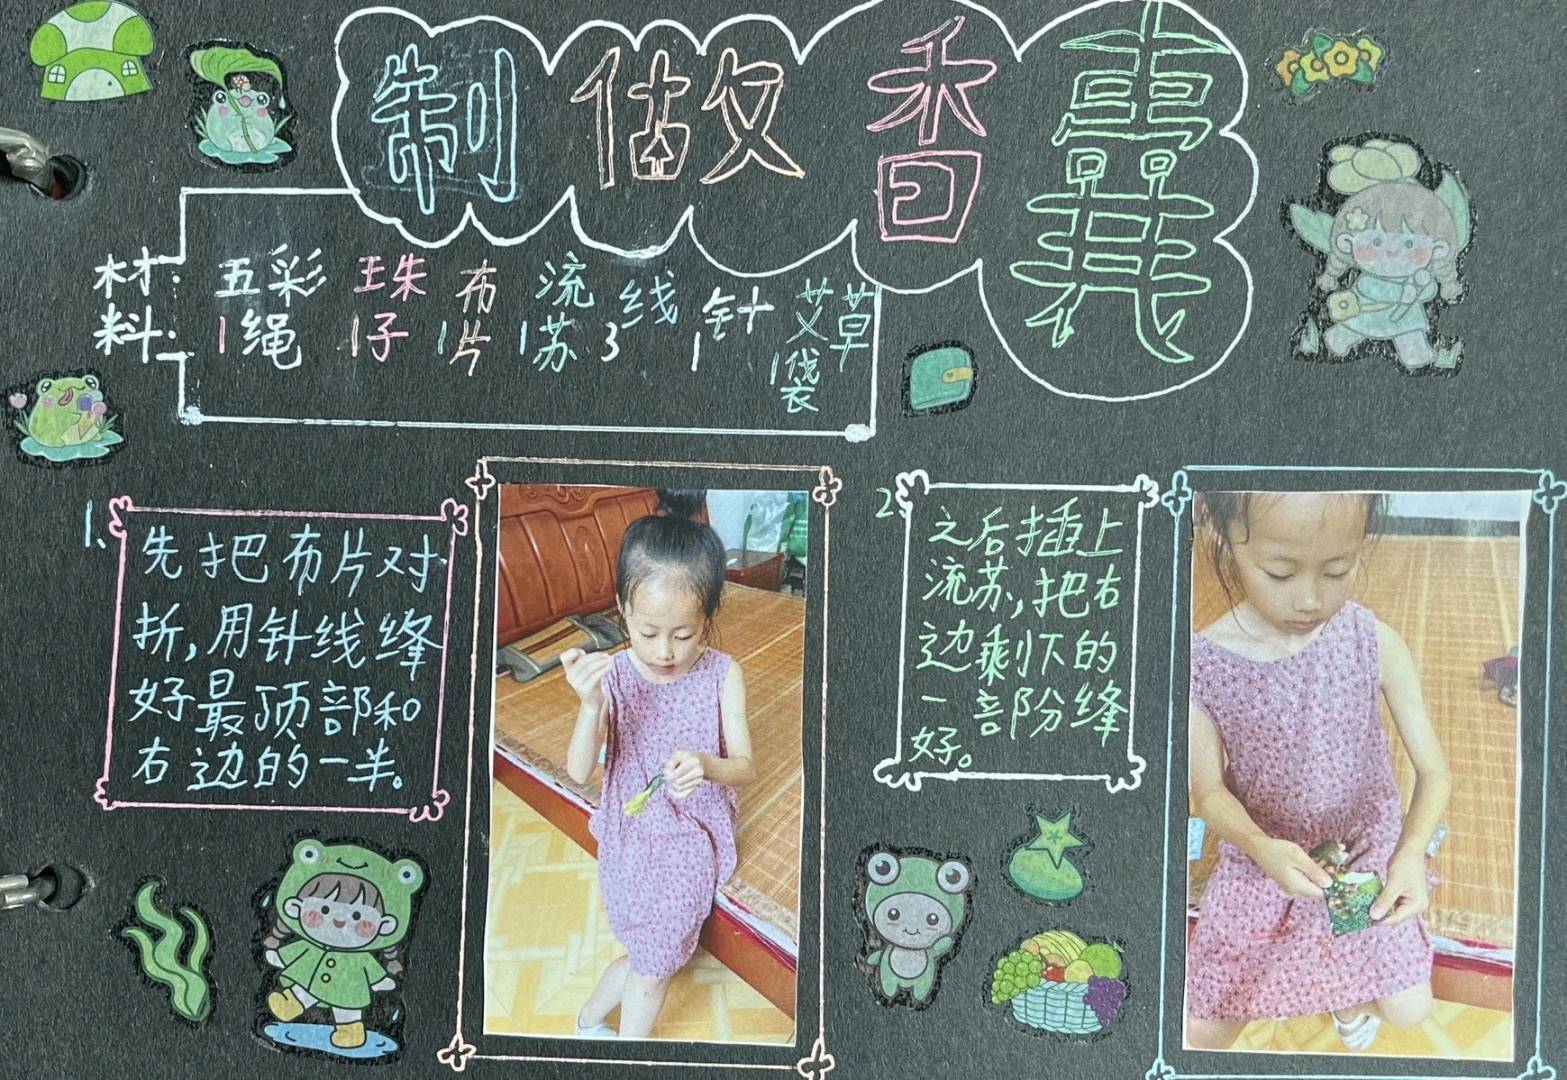 制做香囊
材料:
五彩绳1
珠子1
布片1
流苏1
线3
针1
艾草1袋
1、
先把布片对
折,用针线缝
好最顶部和
右边的一半。
2
之后插上
流苏,把右
边剩下的
一部分缝
好。